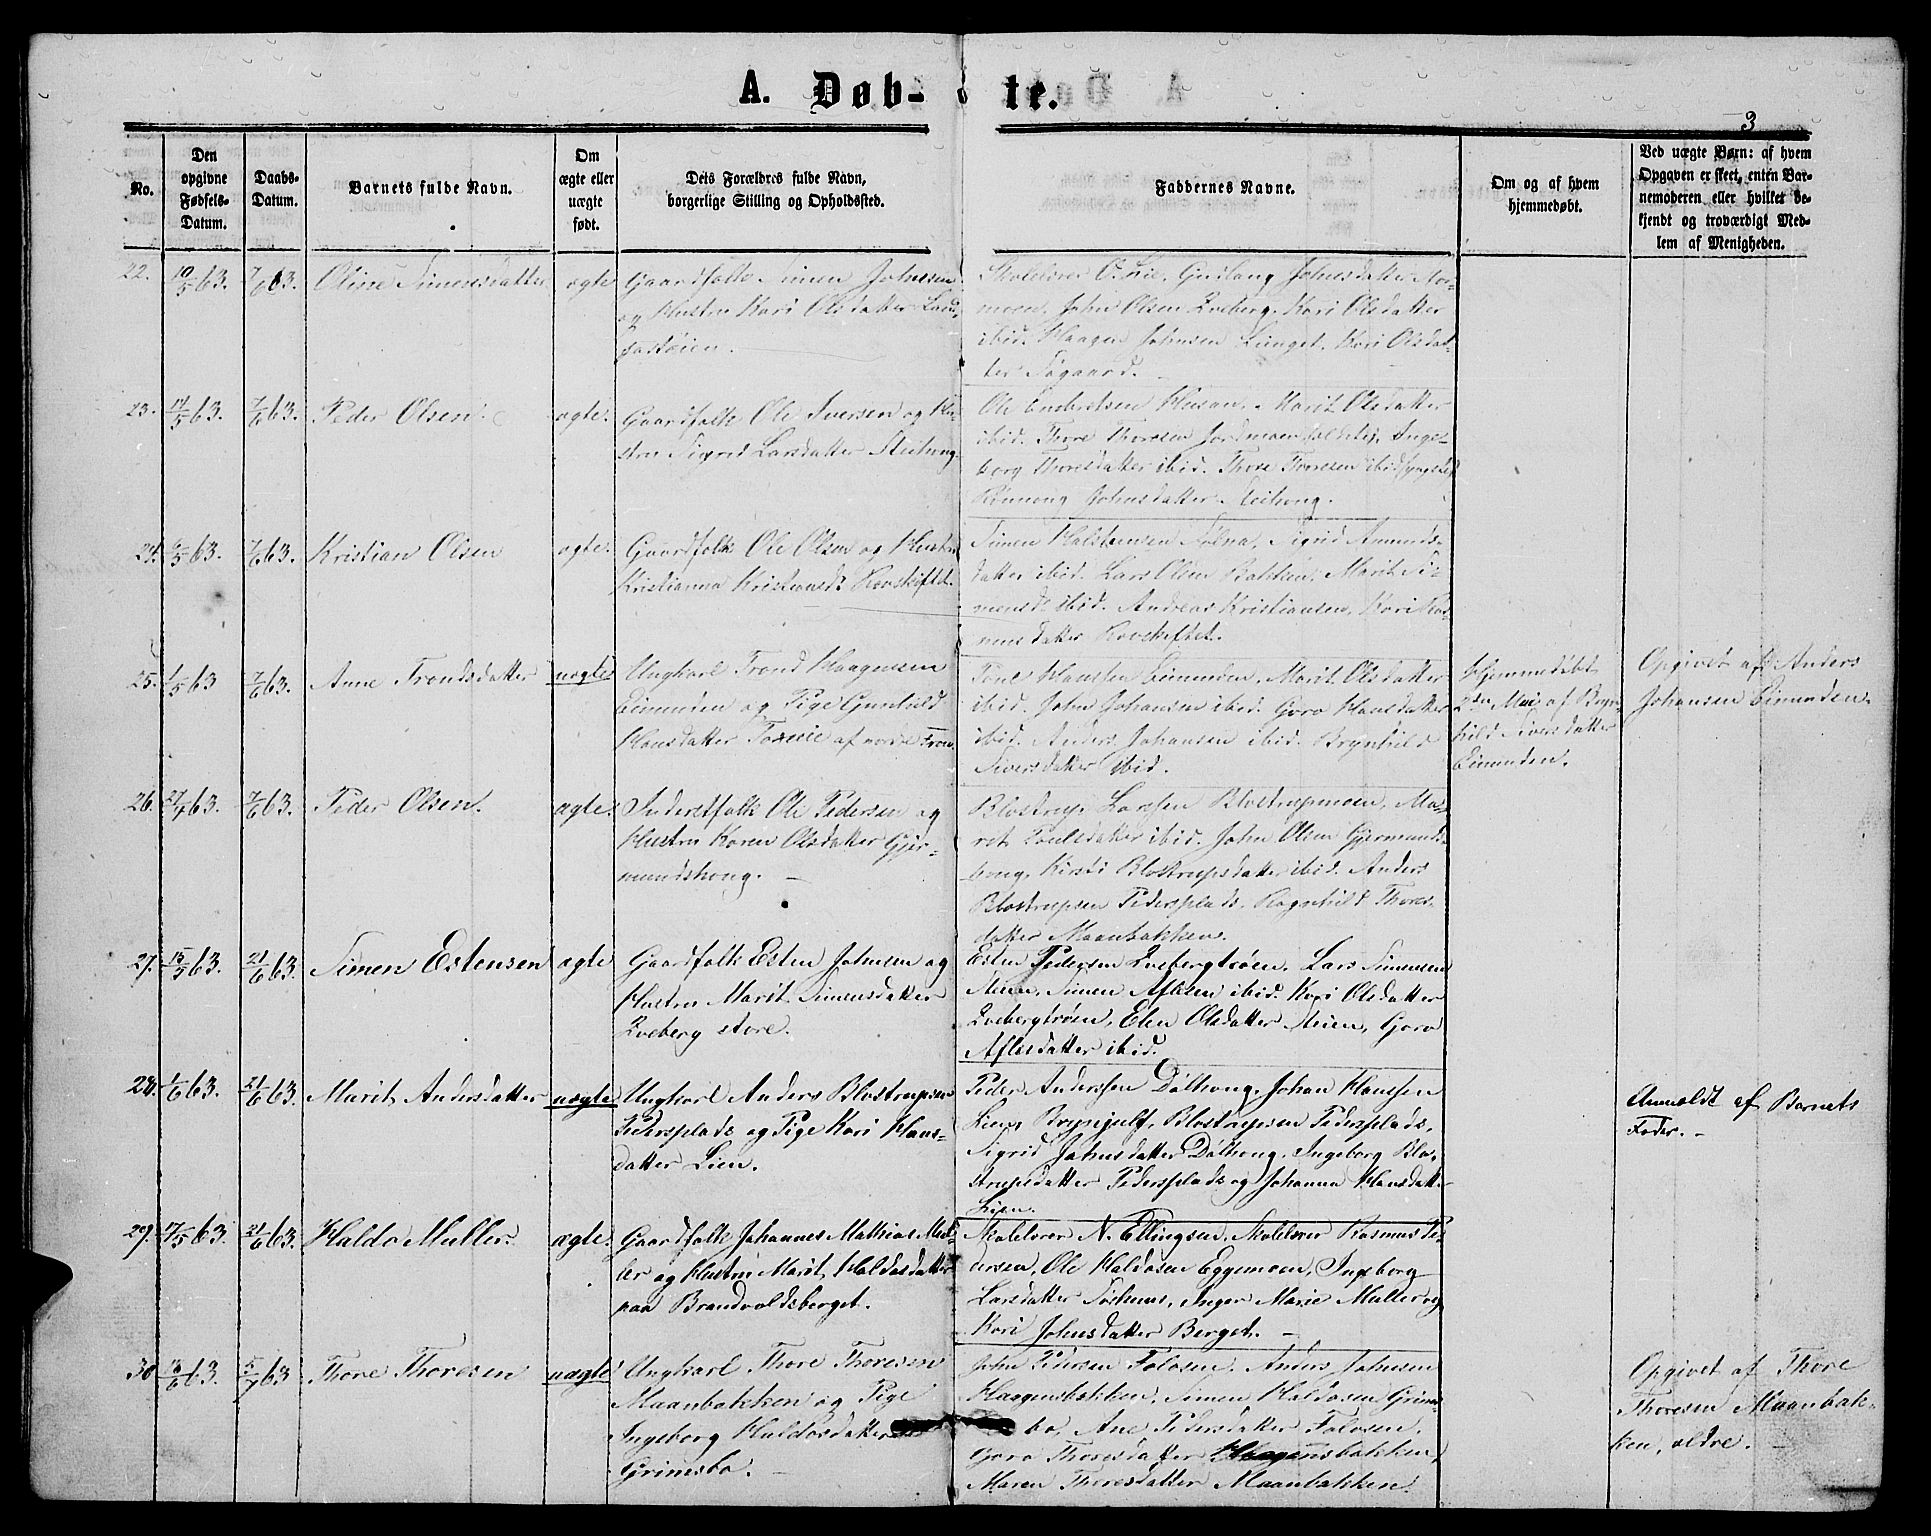 A. Døb- te.
3
No.
Den opgivne Fødsels-Datum.
Daabs-Datum.
Barnets fulde Navn.
Om ægte eller uægte født.
Dets Forældres fulde Navn, borgerlige Stilling og Opholdssted.
Faddernes Navne.
Om og af hvem hjemmedøbt.
Ved uægte Børn: af hvem Opgaven er skeet, enten Barnemoderen eller hvilket bekjendt og troværdigt Medlem af Menigheden.
22. 10/5 63. 7/6 63. Oline Simensdatter ægte
Gaardfolk Simen Johnsen
og Hustru Kari Olsdatter
Skolelærer O. Lie, Gudlaug Johnsdatter
moen, John Olsen Qveberg, Kari Olsdatter
ibid. Haagen Johnsen Kari Olsdat-
ter
23. 14/5 63. 7/6 63. Peder Olsen. ægte.
Gaardfolk Ole Iversen og Hu-
stru Sigrid Larsdatter
Ole Embretsen Marit Olsdatter
ibid. Thore Thoresen Jordmoen Inge-
borg Thoresdatter ibid. Thore Thoresen ibid (yngste)
Rønnoug Johnsdatter
24. 6/5 63. 7/6 63. Kristian Olsen ægte.
Gaardfolk Ole Olsen og Hustru
Kristianna Kristiansdt Rovskiftet.
Simen Halstensen Sølna, Sigrid Amunds-
datter ibid. Lars Olsen Bakken, Marit Si-
mensdt ibid. Andreas Kristiansen, Kari Ras-
musdatter Rovskiftet.
25. 1/5 63 7/6 63. Anne Trondsdatter uægte
Ungkarl Trond Haagensen
Eimunden og Pige Gunhild
Hansdatter af nordre Fron
Hansen Eimunden, Marit Olsdatter
ibid. John Johansen ibid. Goro Hansdatter
ibid. Anders Johansen ibid. Brynhild
Siversdatter ibid.
Hjemmedøbt
2den Mai af Bryn-
hild Siversdatter
Eimunden.
Opgivet af Anders
Johansen Eimunden.
26. 27/4 63. 7/6 63. Peder Olsen. ægte.
Inderstfolk Ole Pedersen og
Hustru Karen Olsdatter Gjer-
mundshoug. –
Blostrup Larsen Blostrupmoen, Ma-
ret Poulsdatter ibid. John Olsen Gjermunds-
houg, Kirsti Blostrupsdatter ibid. Anders
Blostrupsen Pedersplads, Ragnhild Thores-
datter Maanbakken.
27. 15/5 63. 21/6 63. Simen Estensen ægte
Gaardfolk Esten Johnsen og
Hustru Marit Simensdatter
Qveberg store.
Esten Pedersen Qvebergtrøen, Lars Simensen
Steien, Simen Aflesen ibid. Kari Olsdatter
Qvebergtrøen, Elen Olsdatter Steien, Goro
Aflesdatter ibid.
28. 1/6 63. 21/6 63. Marit Andersdatter uægte
Ungkarl Anders Blostrupsen
Pedersplads og Pige Kari Hans-
datter Lien.
Peder Anderssen Dølhoug, Johan Hanssen
Lien, Brynjulf Blostrupsen Pedersplads,
Sigrid Johnsdatter Dølhoug, Ingeborg Blo-
strupsdatter Pedersplads og Johanna Hansdatter
Lien.
Anmeldt af Barnets
Fader. –
29. 17/5 63. 21/6 63. Haldo Muller. ægte.
Gaardfolk Johannes Mathias Mul-
ler og Hustru Marit Haldosdatter
paa Brandvoldsberget.
Skolelærer N. Ellingsen, Skolelærer Rasmus Pe-
dersen, Ole Haldosen Eggemoen, Ingeborg
Larsdatter Inger Marie Muller og
Kari Johnsdatter Berget. –
30 13/6 63. 5/7 63 Thore Thoresen uægte
Ungkarl Thore Thoresen
Maanbakken og Pige
Ingeborg Haldosdatter
Grimsbo. –
John Pedersen Folosen, Anders Johnsen
Haagensbakken, Simen Haldosen Grims-
bo, Ane Pedersdatter Folosen,
Goro Thoresdatter Haagensbakken,
Maren Thoresdatter Maanbakken.
Opgivet af Thore
Thoresen Maanbak-
ken, ældre. –